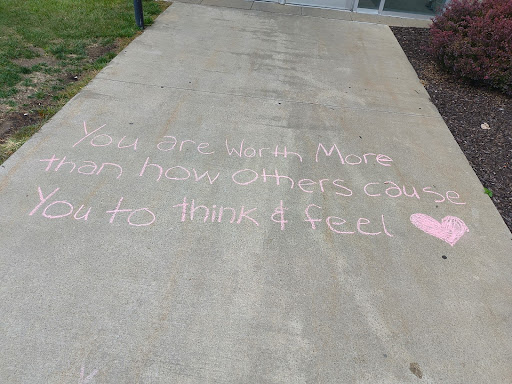 You are Worth More
than how others cause
You to think & feel